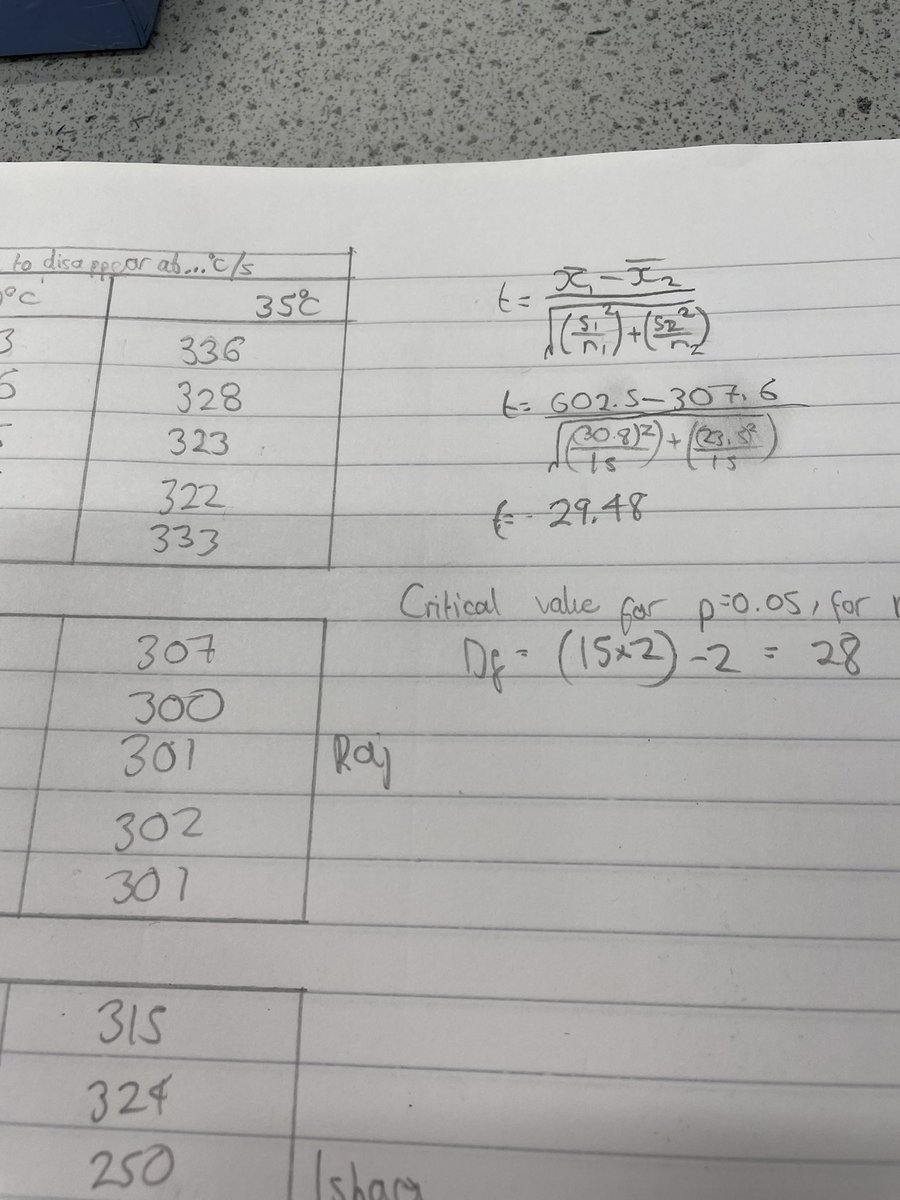 to disappear at...°C/s
°C 35°C
3 336
5 328
5 323
322
333
t = x̄₁ - x̄₂
√(s₁²/n₁) + (s₂²/n₂)
t = 602.5 - 307.6
√((30.8)²/15) + ((23.3)²/15)
t = 29.48
Critical value for p=0.05, for
Df = (15×2) - 2 = 28
307
300
301 Raj
302
301
315
324
250